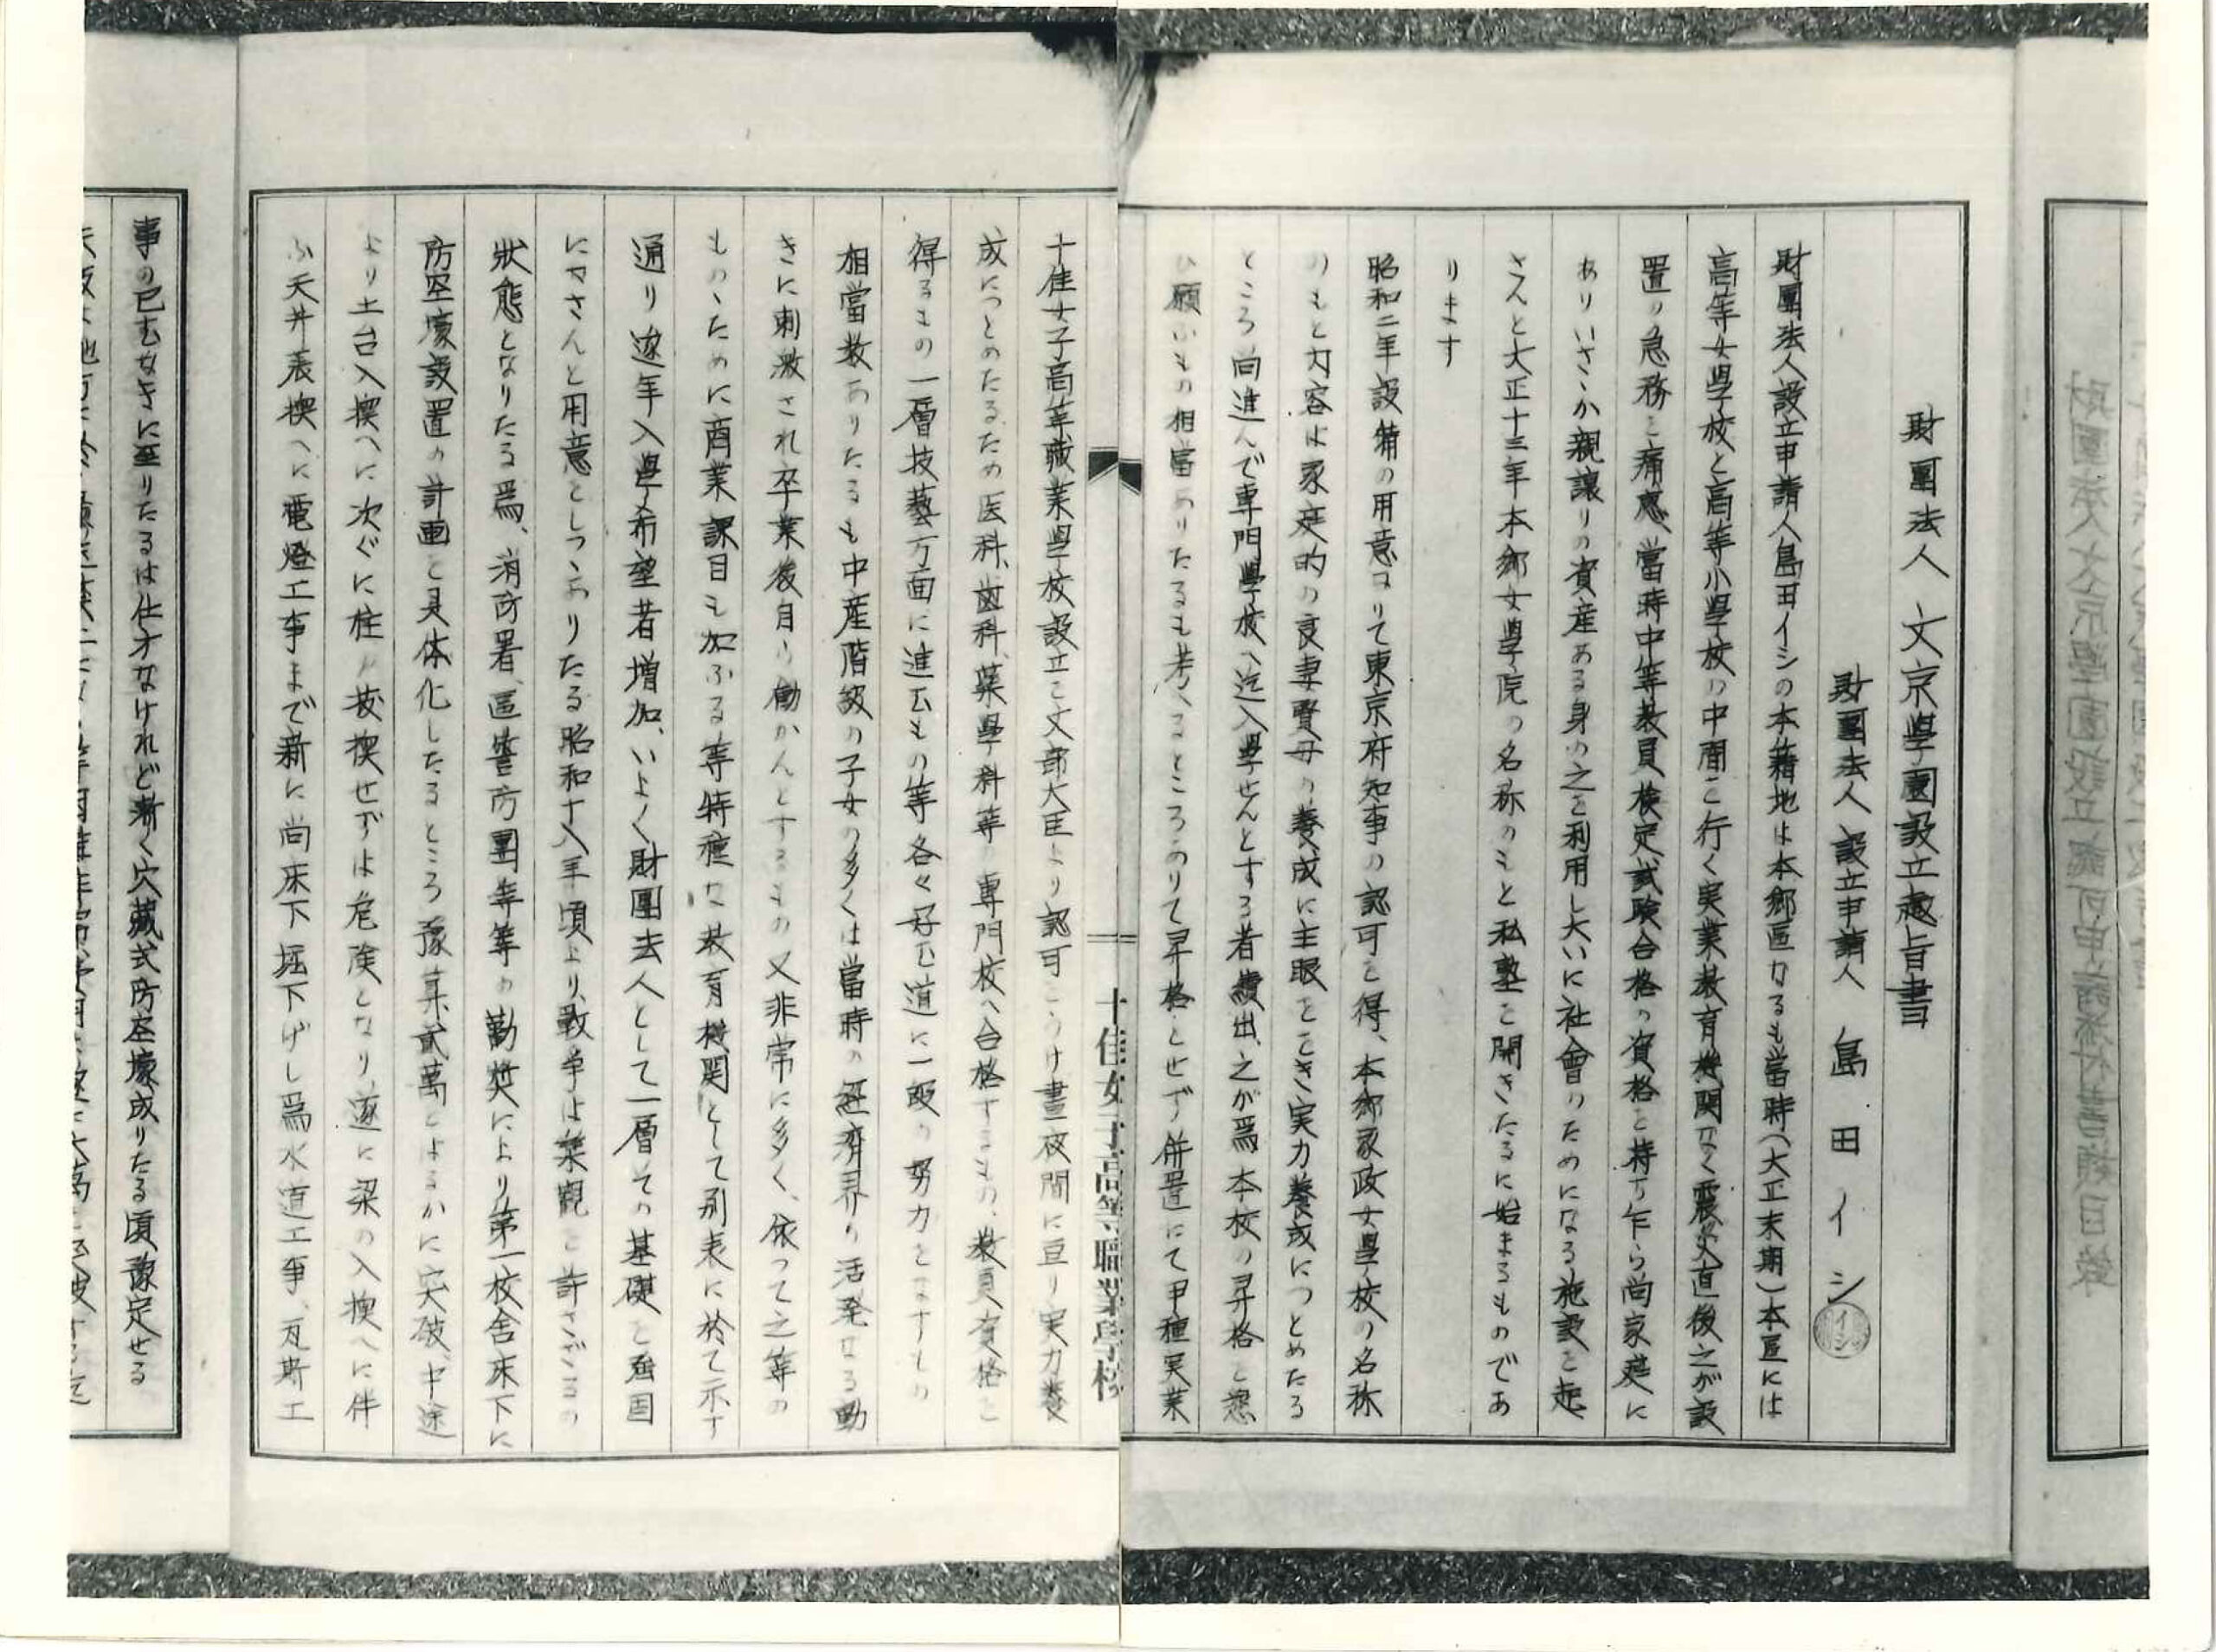 財團法人文京學園設立趣旨書
財團法人設立申請人 島田イシ
イシ
財團法人設立申請人島田イシの本籍地は本郷區なるも當時(大正末期)本區には
高等女學校と高等小學校の中間を行く実業教育機関なく震災直後之が設
置の急務を痛感、當時中等教員検定試験合格の資格を持ち乍ら尚家庭に
ありいさゝか親譲りの資産ある身の之を利用し大いに社會のためになる施設を起
さんと大正十三年本郷女學院の名称のもと私塾を開きたるに始まるものであ
ります
昭和二年設備の用意なりて東京府知事の認可を得、本郷家政女學校の名称
のもと内容は家庭的の良妻賢母の養成に主眼ををき実力養成につとめたる
ところ尚進んで専門學校へ迄入學せんとする者續出、之が為本校の昇格を懇
ひ願ふもの相當ありたるも考へるところありて昇格とせず併置にて甲種実業
十佳女子高等職業學校
十佳女子高等職業學校設立を文部大臣より認可をうけ晝夜間に亘り実力養
成につとめたるため医科、歯科、薬學科等専門校へ合格するもの、教員資格を
得るもの一層技藝方面に進むもの等各々好む道に一段の努力をなすもの
相當数ありたるも中産階級の子女の多くは當時の経済界の活発なる動
きに刺激され卒業後自ら働かんとするもの又非常に多く、依つて之等の
ものゝために商業課目も加ふる等特種な教育機関として別表に於て示す
通り逐年入學希望者増加、いよ〱財團法人として一層その基礎を强固
になさんと用意としつゝありたる昭和十八年頃より、戦争は楽観を許さざるの
狀態となりたる爲、消防署、區警防團等等の勧奨により第一校舎床下に
防空壕設置の計画を具体化したるところ豫算貳萬をはるかに突破、中途
より土台入換へに次ぐに柱の抜換せずは危険となり、遂に梁の入換へに伴
ふ天井表換へに電燈工事まで新に尚床下掘下げし爲水道工事、瓦斯工
事の已むなきに至りたるは仕方なけれど漸く穴蔵式防空壕成りたる頃豫定せる